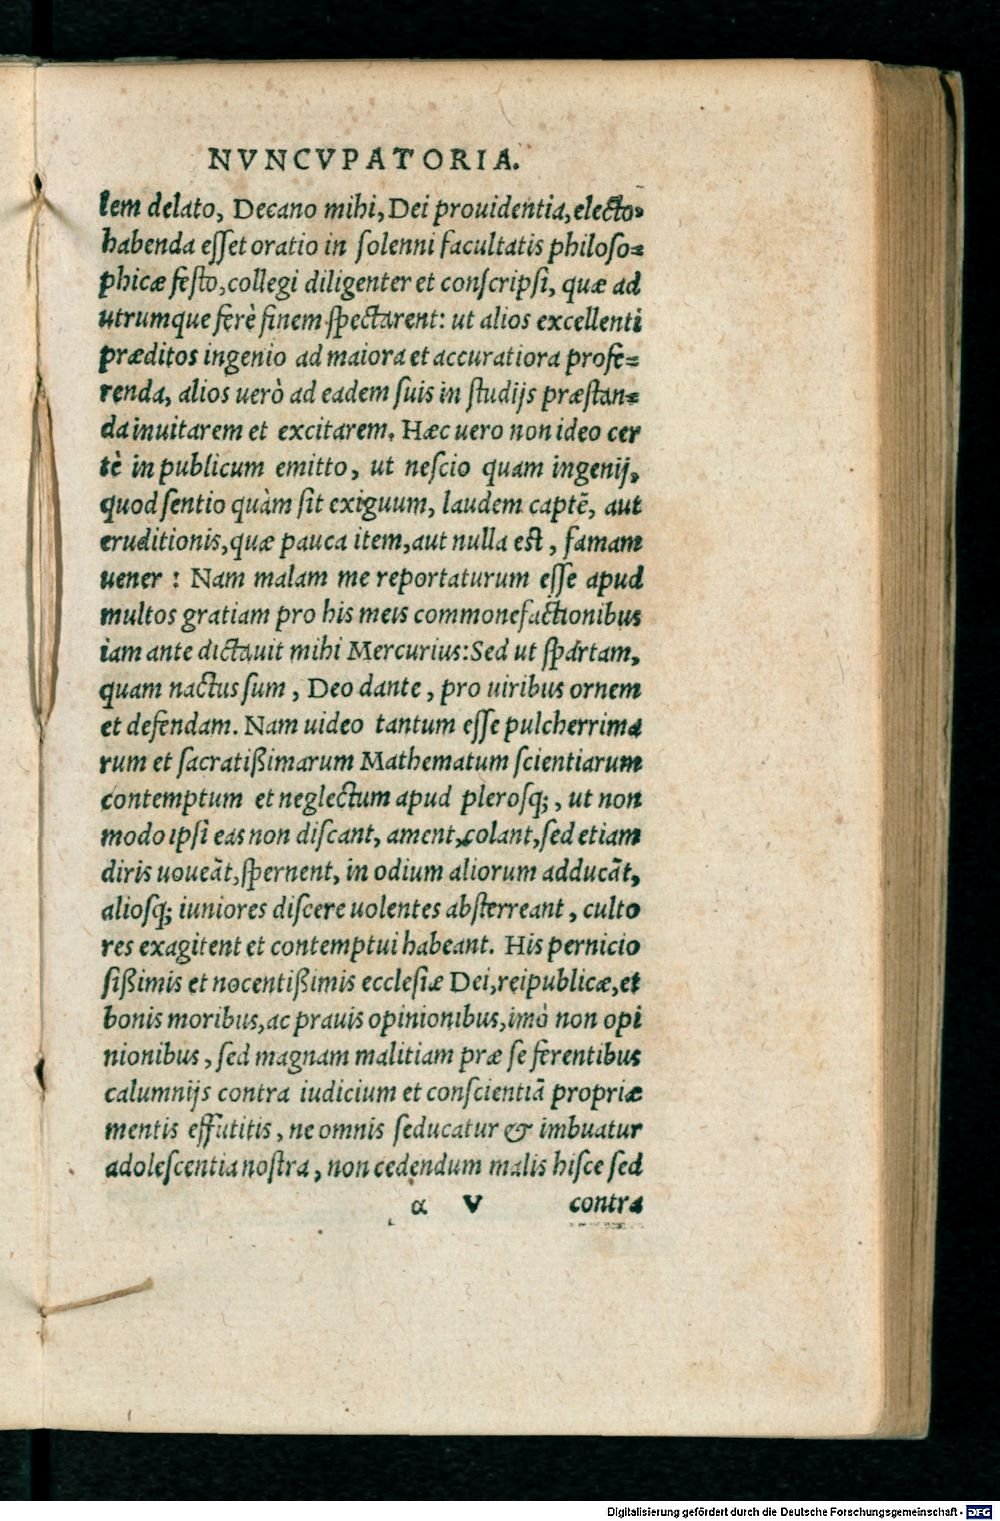 NVNCVPATORIA.
lem delato, Decano mihi, Dei prouidentia, electo,
habenda eſſet oratio in ſolenni facultatis philoſo=
phicæ feſto, collegi diligenter et conſcripſi, quæ ad
utrumque ferè finem ſpectarent: ut alios excellenti
præditos ingenio ad maiora et accuratiora profe=
renda, alios uerò ad eadem ſuis in ſtudijs præſtan=
da inuitarem et excitarem. Hæc uero non ideo cer
tè in publicum emitto, ut neſcio quam ingenij,
quod ſentio quàm ſit exiguum, laudem captẽ, aut
eruditionis, quæ pauca item, aut nulla eſt, famam
uener : Nam malam me reportaturum eſſe apud
multos gratiam pro his meis commonefactionibus
iam ante dictauit mihi Mercurius: Sed ut ſpártam,
quam nactus ſum, Deo dante, pro uiribus ornem
et defendam. Nam uideo tantum eſſe pulcherrima
rum et ſacratißimarum Mathematum ſcientiarum
contemptum et neglectum apud pleroſq;, ut non
modo ipſi eas non diſcant, ament, colant, ſed etiam
diris uoueãt, ſpernent, in odium aliorum adducãt,
alioſq; iuniores diſcere uolentes abſterreant, culto
res exagitent et contemptui habeant. His pernicio
ſißimis et nocentißimis eccleſiæ Dei, reipublicæ, et
bonis moribus, ac prauis opinionibus, imò non opi
nionibus, ſed magnam malitiam præ ſe ferentibus
calumnijs contra iudicium et conſcientiã propriæ
mentis effutitis, ne omnis ſeducatur & imbuatur
adoleſcentia noſtra, non cedendum malis hiſce ſed
α V contra
Digitalisierung gefördert durch die Deutsche Forschungsgemeinschaft - DFG